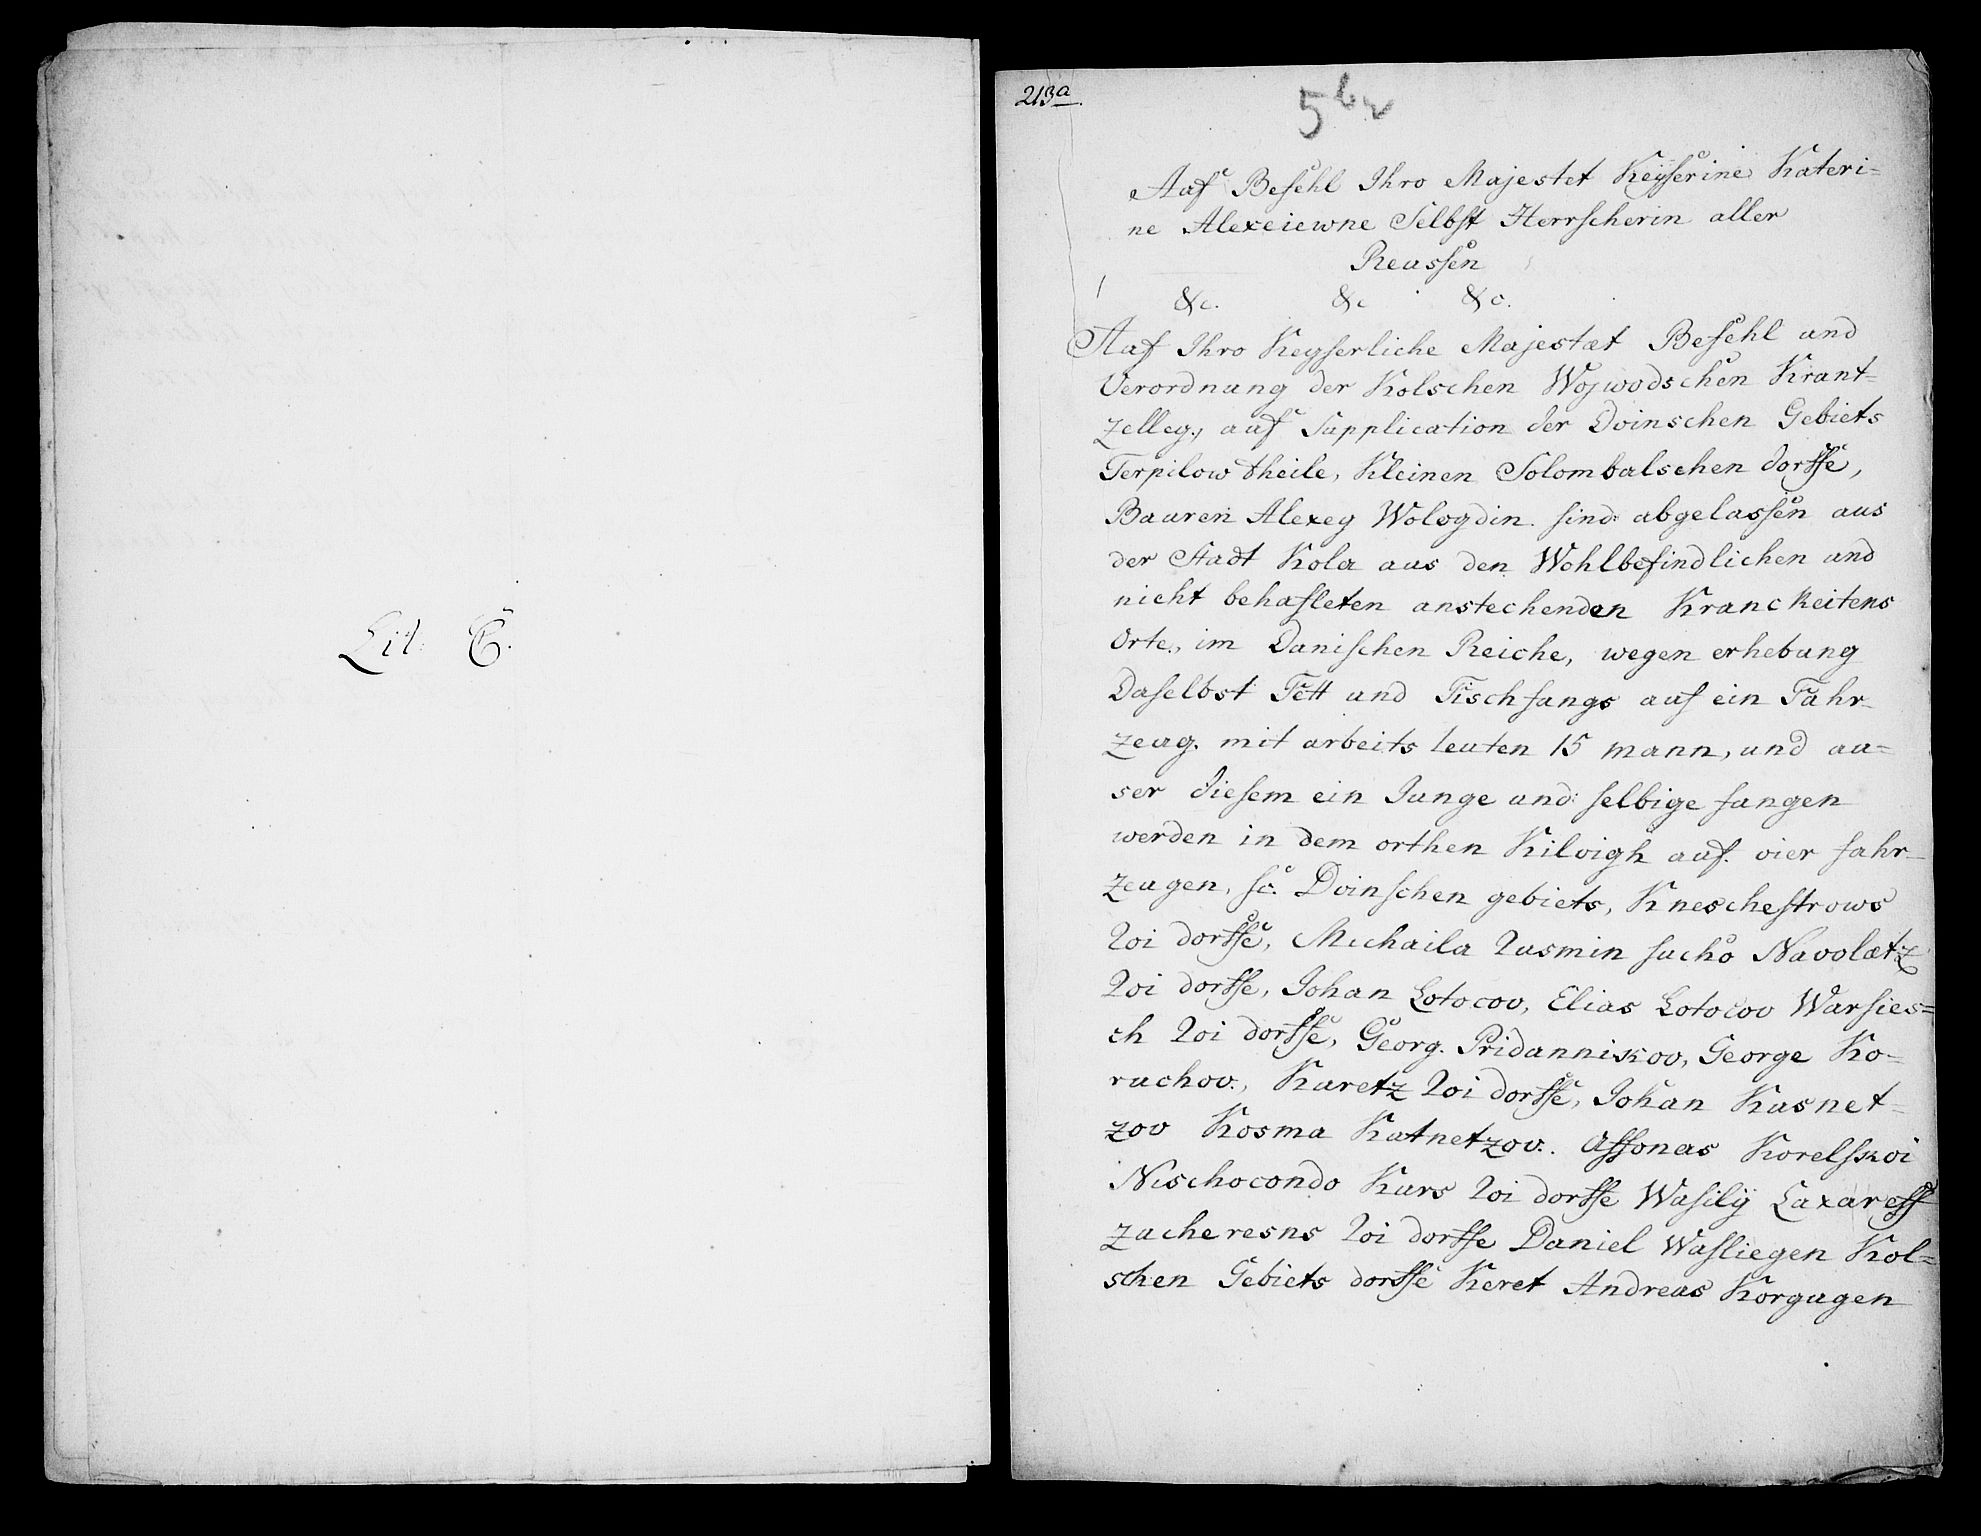 Lit: C.
213a.
5
Auf Befehl Ihro Majestet Keyserine Kateri=
ne Alexeiewne Selbst Herrscherin aller
Reussen
&c. &c &c.
Auf Ihro Keyserliche Majestæt Befehl und
Verordnung der Kolschen Wojwodschen Krant=
zelley, auf Supplication der Dvinschen Gebiets
Terpilow theile, Kleinen Solombalschen dorffe,
Bauren Alexey Wologdin sind abgelassen aus
der Stadt Kola aus den Wohlbefindlichen und
nicht behafteten anstechenden Kranckeitens
Orte, im Danischen Reiche, wegen erhebung
Daselbst Fett und Fischfangs auf ein Fahr=
zeug. mit arbeits leuten 15 mann, und au=
ser diesem ein Junge und selbige fangen
werden in dem orthen Kilvigh auf. vier fahr=
zeugen, sc. Dvinschen gebiets, Kneschestrows
koi dorffe, Michaila Kusmin sucho Navolætz
koi dorffe, Johan Lotocov, Elias Lotocov Warsies=
ch koi dorffe, Georg. Pridanniskov, George Ko=
ruchov., Kuretz koi dorffe, Johan Kusnet=
zov Kosma Katnetzov. Affonas Korelskoi
Nischocondo Kurs koi dorffe Wasilÿ Laxareff
zucheresns koi dorffe Daniel Wasliegen Kol=
schen Gebiets dorffe Keret Andreas Korgugen